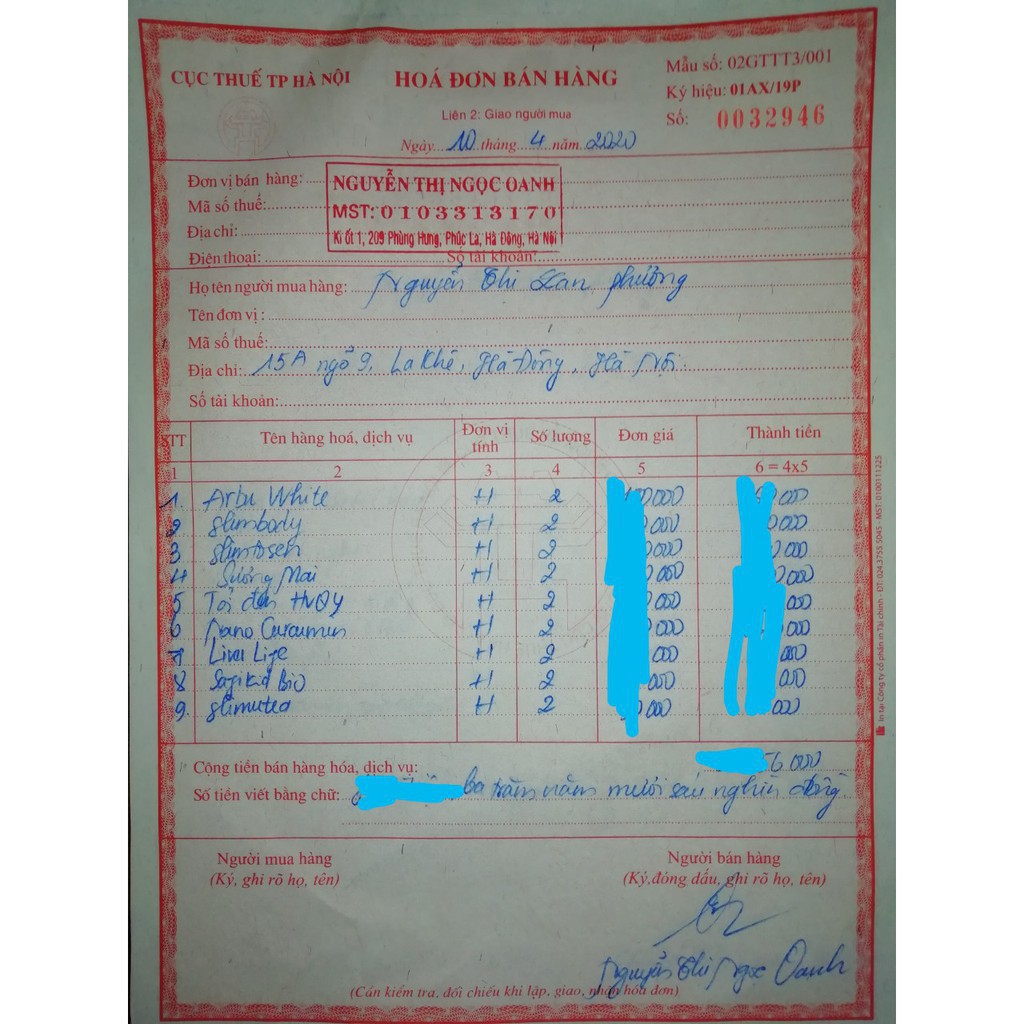 CỤC THUẾ TP HÀ NỘI
HOÁ ĐƠN BÁN HÀNG
Liên 2: Giao người mua
Ngày 10 tháng 4 năm 2020
Mẫu số: 02GTTT3/001
Ký hiệu: 01AX/19P
Số: 0032946
Đơn vị bán hàng: NGUYỄN THỊ NGỌC OANH
Mã số thuế: MST: 0103313170
Địa chỉ: Ki ốt 1, 209 Phùng Hưng, Phúc La, Hà Đông, Hà Nội
Điện thoại: Số tài khoản:
Họ tên người mua hàng: Nguyễn Thị Lan Phương
Tên đơn vị:
Mã số thuế:
Địa chỉ: 15A ngõ 9, La Khê, Hà Đông, Hà Nội
Số tài khoản:
STT Tên hàng hoá, dịch vụ Đơn vị tính Số lượng Đơn giá Thành tiền
1 2 3 4 5 6 = 4x5
1. Arbu White H 2 000 000
2 Slimbody H 2 000 000
3 H 2 000 000
4 Sương Mai H 2 000 000
5 Tỏi đen HVQY H 2 000 000
6 Nano Curcumin H 2 000 000
7 Liva Life H 2 000 000
8 Sagikid Bio H 2 000 000
9. Slimutea H 2 000 000
Cộng tiền bán hàng hóa, dịch vụ: 6 000
Số tiền viết bằng chữ: ba trăm năm mươi sáu nghìn đồng
Người mua hàng
(Ký, ghi rõ họ, tên)
Người bán hàng
(Ký,đóng dấu, ghi rõ họ, tên)
Nguyễn Thị Ngọc Oanh
(Cần kiểm tra, đối chiếu khi lập, giao, nhận hóa đơn)
In tại Công ty cổ phần in Tài chính - ĐT: 024.3755.5045 - MST: 0100111225